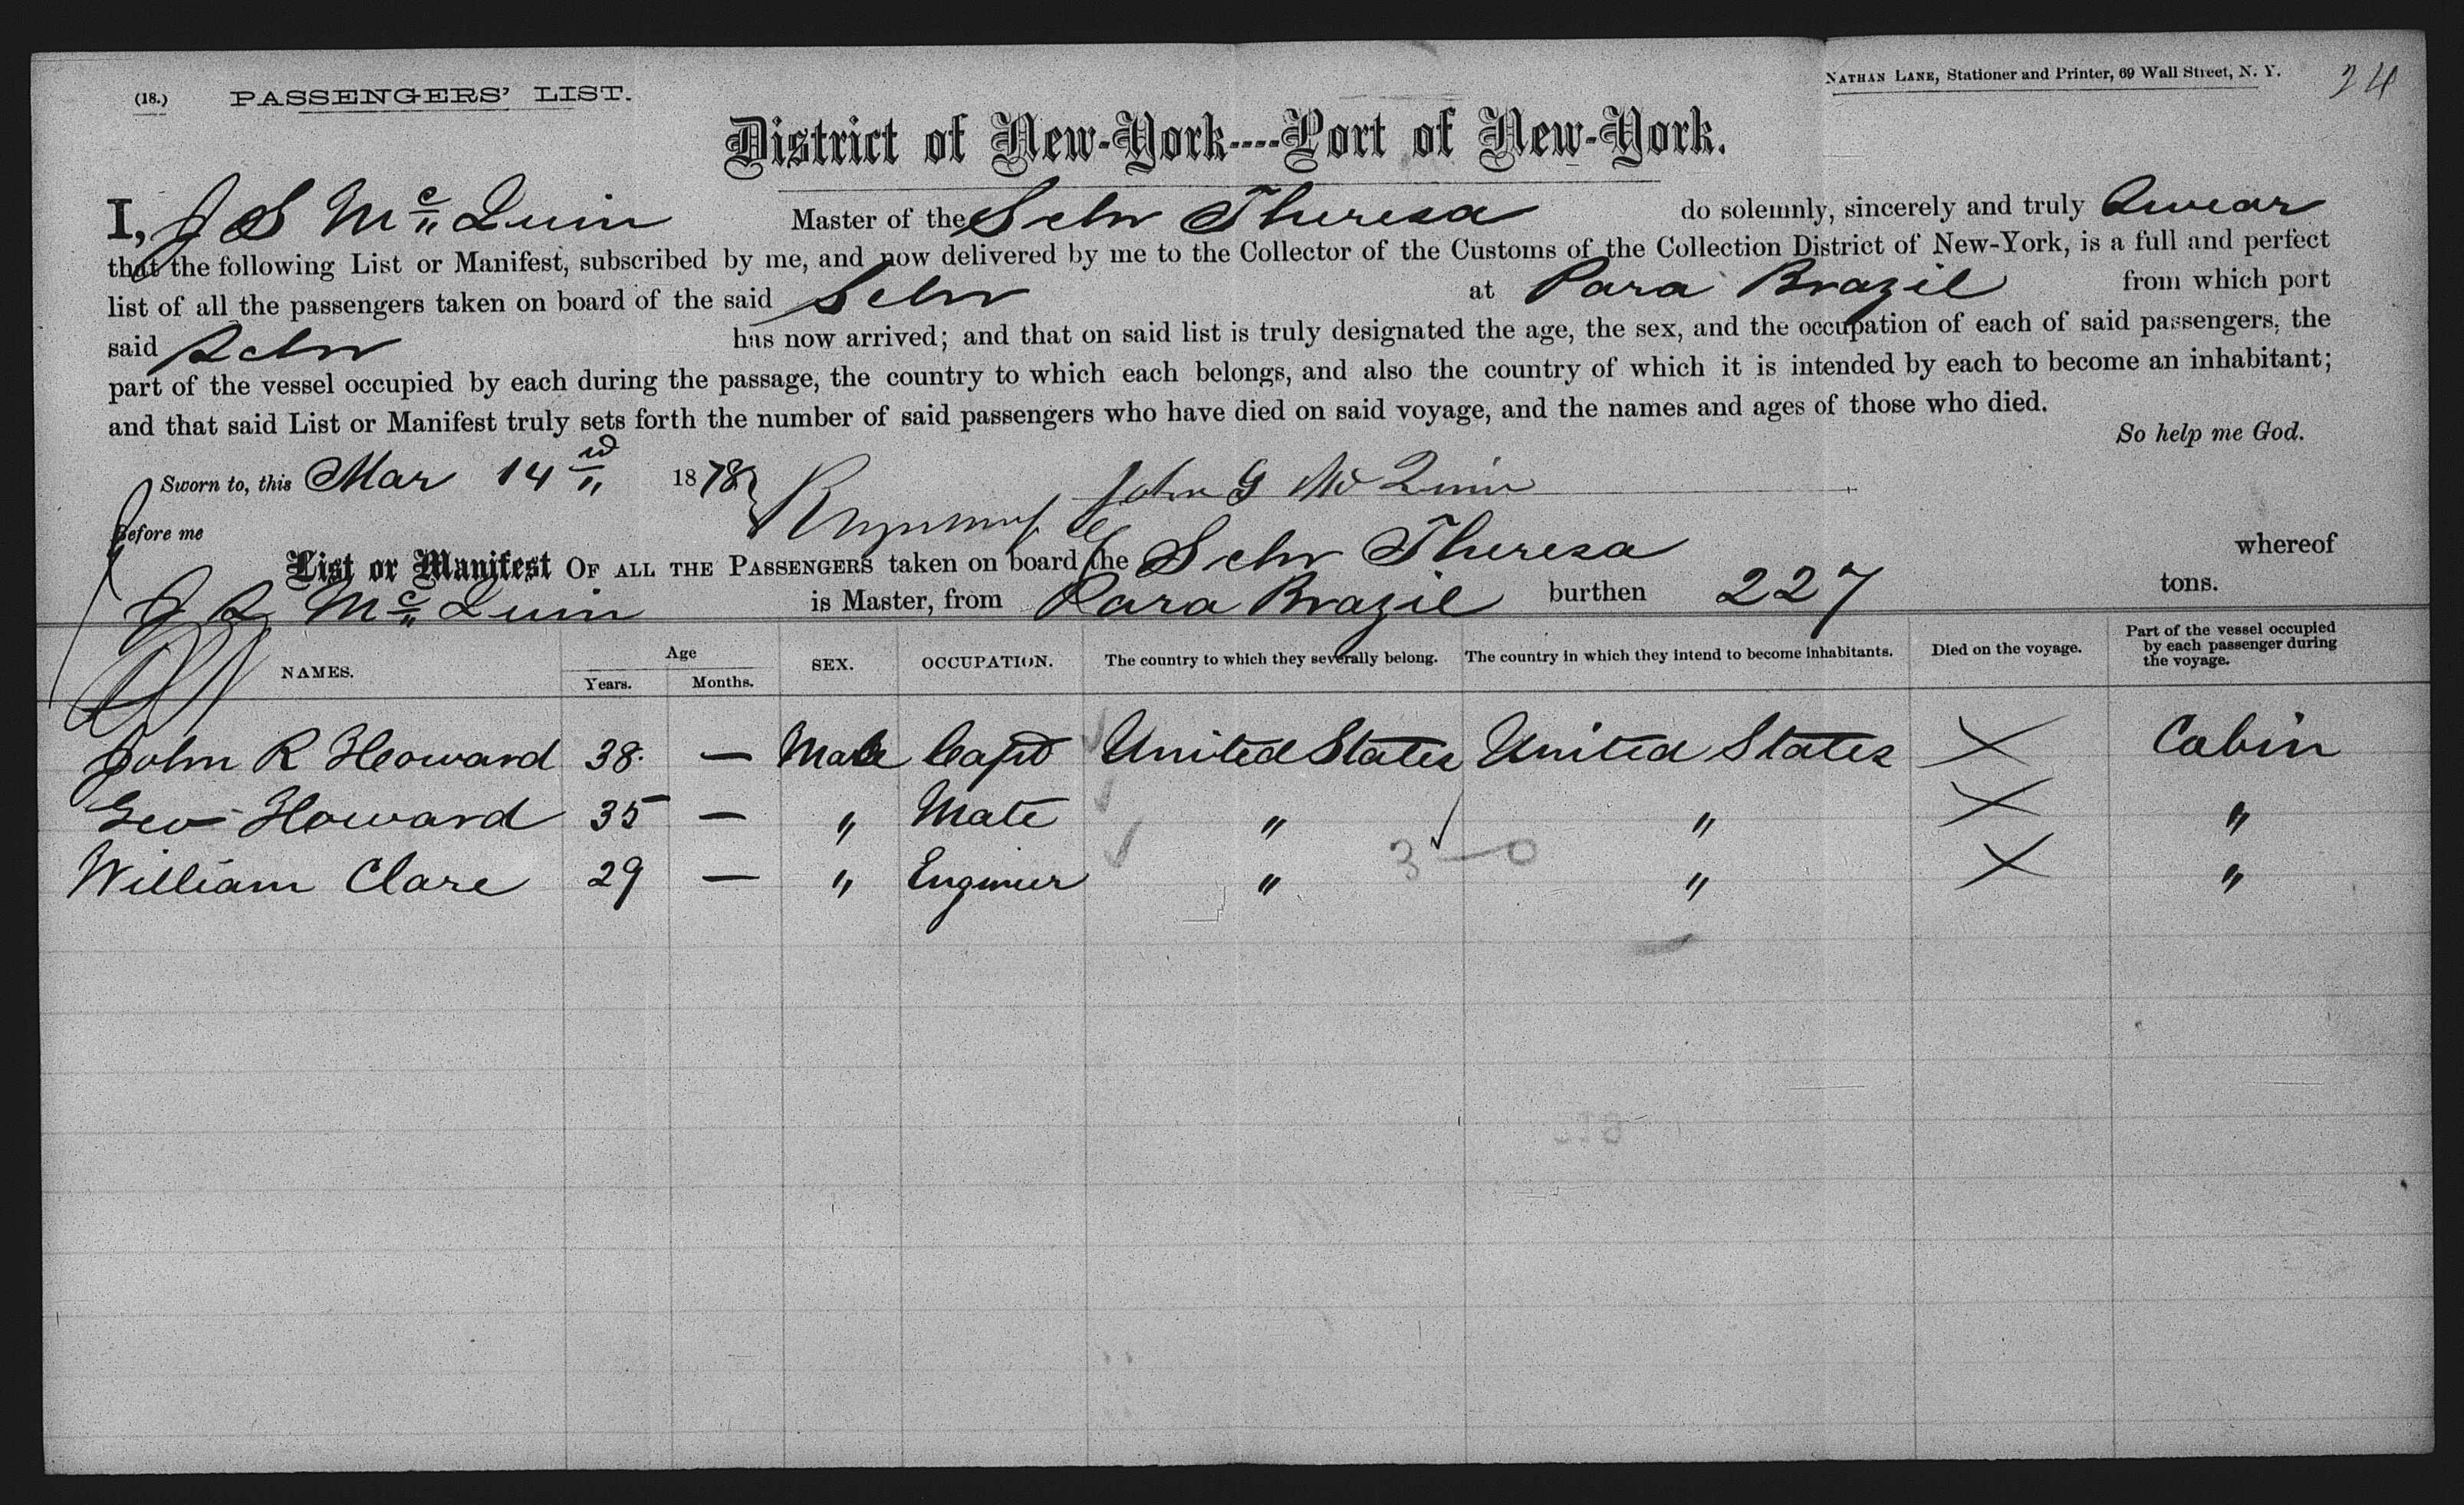 (18.) PASSENGERS' LIST.
NATHAN LANE, Stationer and Printer, 69 Wall Street, N. Y. 24
District of New-York----Port of New-York.
I, J S Mc Quin Master of the Schr Theresa do solemnly, sincerely and truly Swear
that the following List or Manifest, subscribed by me, and now delivered by me to the Collector of the Customs of the Collection District of New-York, is a full and perfect
list of all the passengers taken on board of the said Schr at Para Brazil from which port
said Schr has now arrived; and that on said list is truly designated the age, the sex, and the occupation of each of said passengers, the
part of the vessel occupied by each during the passage, the country to which each belongs, and also the country of which it is intended by each to become an inhabitant;
and that said List or Manifest truly sets forth the number of said passengers who have died on said voyage, and the names and ages of those who died.
So help me God.
Sworn to, this Mar 14 1878 John G Mc Quin
Before me
List or Manifest OF ALL THE PASSENGERS taken on board the Schr Theresa whereof
J S Mc Quin is Master, from Para Brazil burthen 227 tons.
NAMES. Age Years. Months. SEX. OCCUPATION. The country to which they severally belong. The country in which they intend to become inhabitants. Died on the voyage. Part of the vessel occupied by each passenger during the voyage.
John R Howard 38. — Male Capt United States United States X Cabin
Geo Howard 35 — " Mate " " X "
William Clare 29 — " Engineer " 3 — 0 " X "